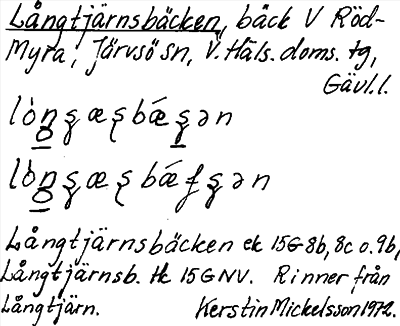 Långtjärnsbäcken, bäck V Röd-
Myra, Järvsö sn, V. Häls. doms. tg,
Gävl. l.
Långtjärnsbäcken ek 15G 8b, 8c o. 9b,
Långtjärnsb. tk 15G NV. Rinner från
Långtjärn. Kerstin Mickelsson 1972.